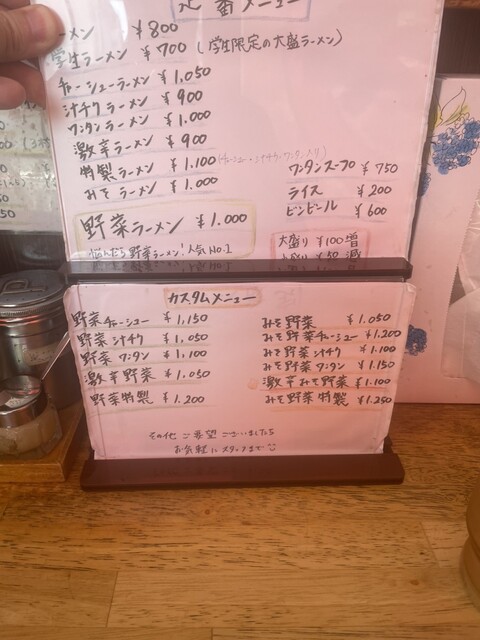 定番メニュー
ーメン ￥800
学生ラーメン ￥700 (学生限定の大盛ラーメン)
チャーシューラーメン ￥1,050
汁チクラーメン ￥900
ワンタンラーメン ￥1,000
激辛ラーメン ￥900
特製ラーメン ￥1,100 (チャーシュー・汁チク・ワンタン入り)
みそラーメン ￥1,000
ワンタンスープ ￥750
ライス ￥200
ビンビール ￥600
野菜ラーメン ￥1,000
悩んだら野菜ラーメン!人気No.1
大盛り ￥100増
￥50 減
カスタムメニュー
野菜チャーシュー ￥1,150
野菜汁チク ￥1,050
野菜ワンタン ￥1,100
激辛野菜 ￥1,050
野菜特製 ￥1,200
みそ野菜 ￥1,050
みそ野菜チャーシュー ￥1,200
みそ野菜汁チク ￥1,100
みそ野菜ワンタン ￥1,150
激辛みそ野菜 ￥1,100
みそ野菜特製 ￥1,250
その他ご要望ございましたら
お気軽にスタッフまで